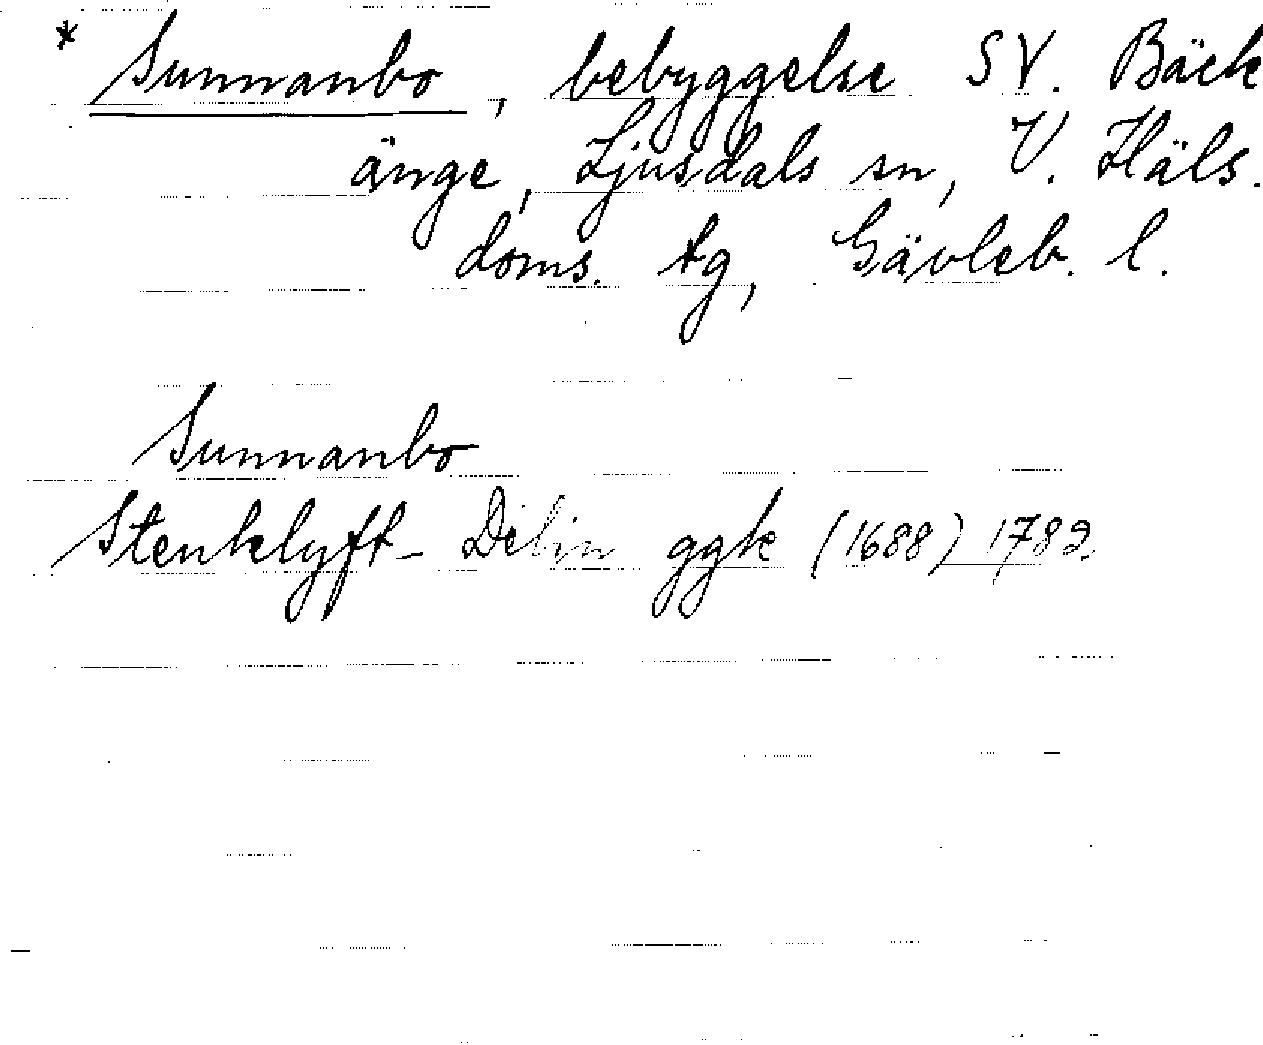 * Sunnanbo, bebyggelse SV. Bäck
änge, Ljusdals sn, V. Häls.
doms. tg, Gävleb. l.
Sunnanbo
Stenklyft- Delin ggk (1688) 1789.